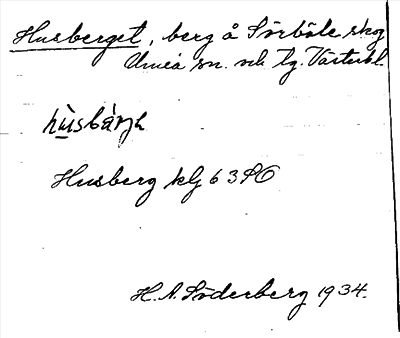 Husberget, berg å Sörböle skog
Umeå sn. och tg. Västerbl.
hùsbárjə
Husberg klj 63 SO
H. A. Söderberg 1934.